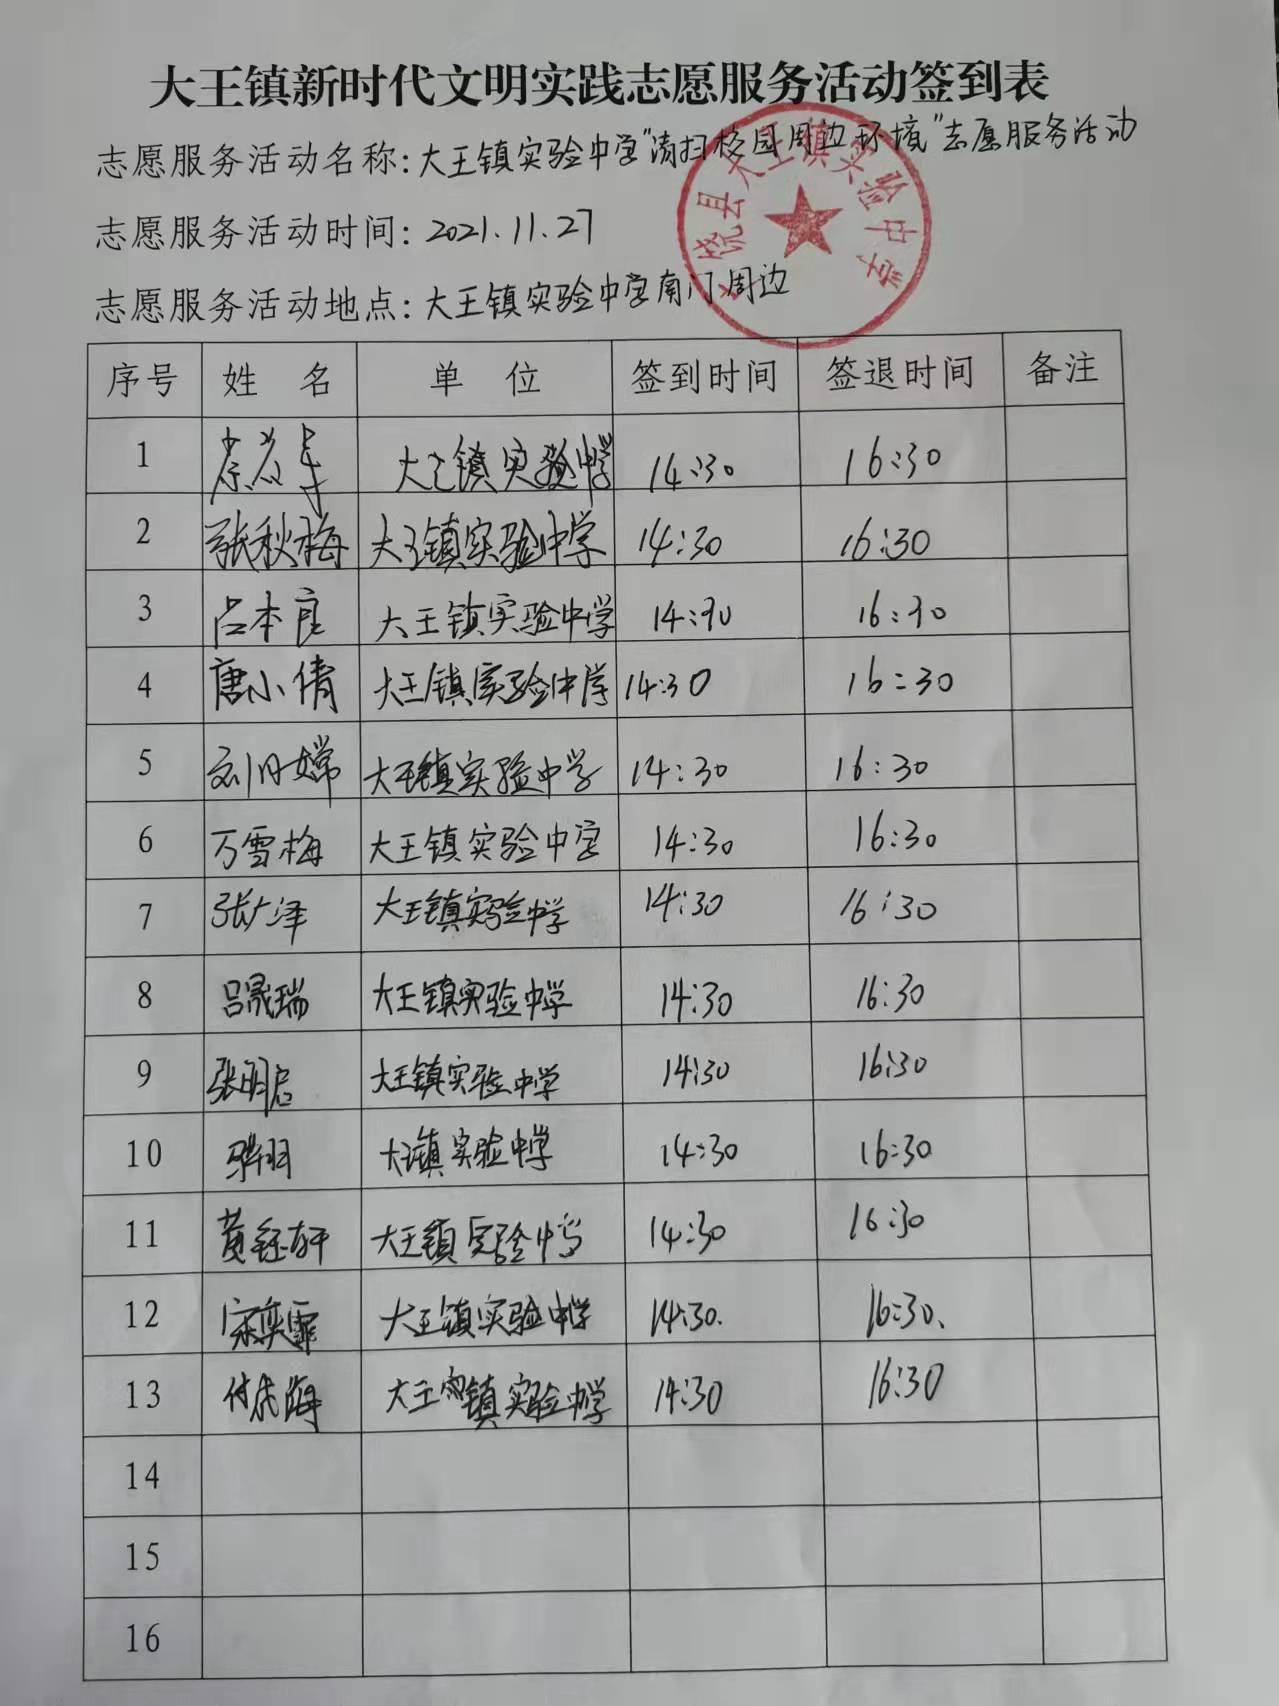 大王镇新时代文明实践志愿服务活动签到表
志愿服务活动名称:大王镇实验中学"清扫校园周边环境"志愿服务活动
志愿服务活动时间:2021.11.27
志愿服务活动地点:大王镇实验中学南门周边
饶县大王镇实验中学
序号 姓名 单位 签到时间 签退时间 备注
1 大王镇实验中学 14:30 16:30
2 张秋梅 大王镇实验中学 14:30 16:30
3 吕本良 大王镇实验中学 14:30 16:30
4 唐小倩 大王镇实验中学 14:30 16:30
5 刘丹嫦 大王镇实验中学 14:30 16:30
6 万雪梅 大王镇实验中学 14:30 16:30
7 张广泽 大王镇实验中学 14:30 16:30
8 吕晟瑞 大王镇实验中学 14:30 16:30
9 张明启 大王镇实验中学 14:30 16:30
10 大王镇实验中学 14:30 16:30
11 黄钰轩 大王镇实验中学 14:30 16:30
12 宋奕霏 大王镇实验中学 14:30. 16:30.
13 大王镇实验中学 14:30 16:30
14
15
16